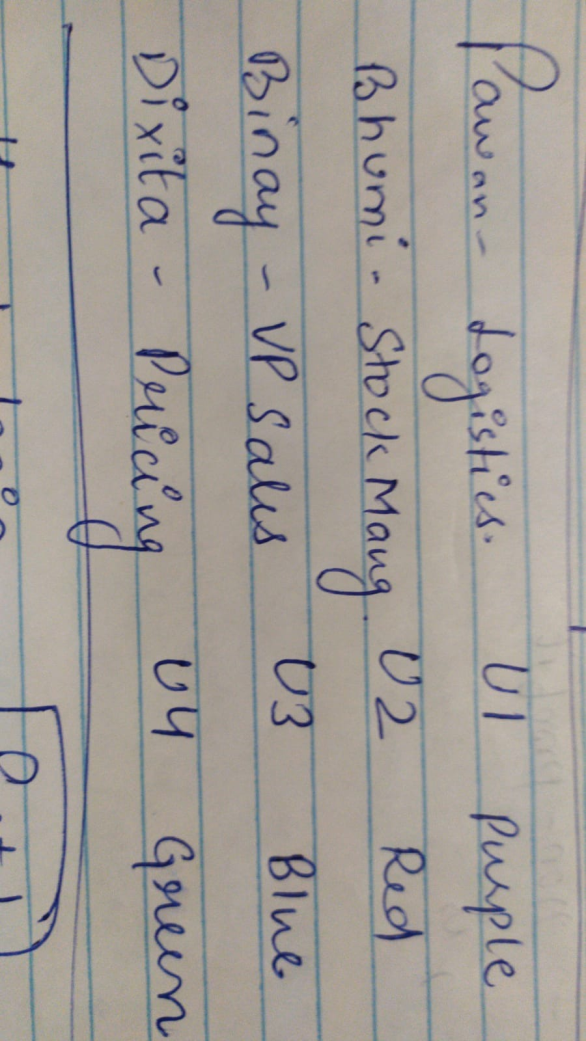 Pawan - Logistics. U1 Purple
Bhumi - Stock Mang. U2 Red
Binay - VP Sales U3 Blue
Dixita - Pricing U4 Green